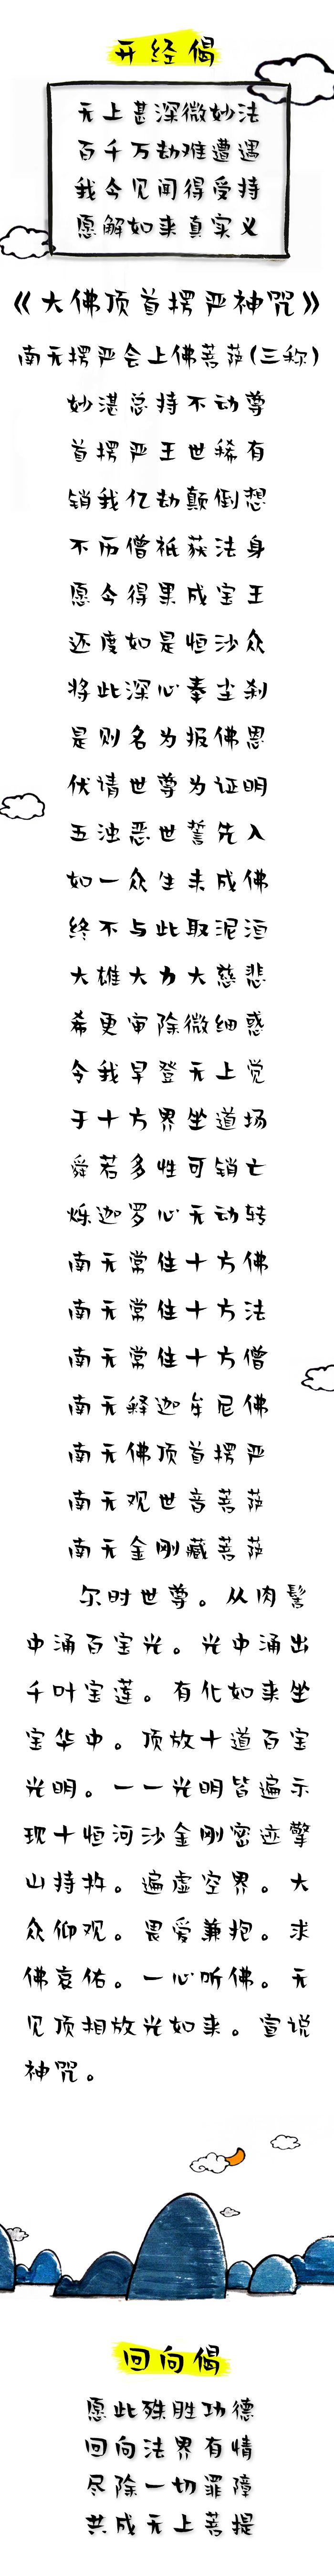 开经偈
无上甚深微妙法
百千万劫难遭遇
我今见闻得受持
愿解如来真实义
《大佛顶首楞严神咒》
南无楞严会上佛菩萨(三称)
妙湛总持不动尊
首楞严王世稀有
销我亿劫颠倒想
不历僧祇获法身
愿今得果成宝王
还度如是恒沙众
将此深心奉尘刹
是则名为报佛恩
伏请世尊为证明
五浊恶世誓先入
如一众生未成佛
终不与此取泥洹
大雄大力大慈悲
希更审除微细惑
令我早登无上觉
于十方界坐道场
舜若多性可销亡
烁迦罗心无动转
南无常住十方佛
南无常住十方法
南无常住十方僧
南无释迦牟尼佛
南无佛顶首楞严
南无观世音菩萨
南无金刚藏菩萨
尔时世尊。从肉髻
中涌百宝光。光中涌出
千叶宝莲。有化如来坐
宝华中。顶放十道百宝
光明。一一光明皆遍示
现十恒河沙金刚密迹擎
山持杵。遍虚空界。大
众仰观。畏爱兼抱。求
佛哀佑。一心听佛。无
见顶相放光如来。宣说
神咒。
回向偈
愿此殊胜功德
回向法界有情
尽除一切罪障
共成无上菩提